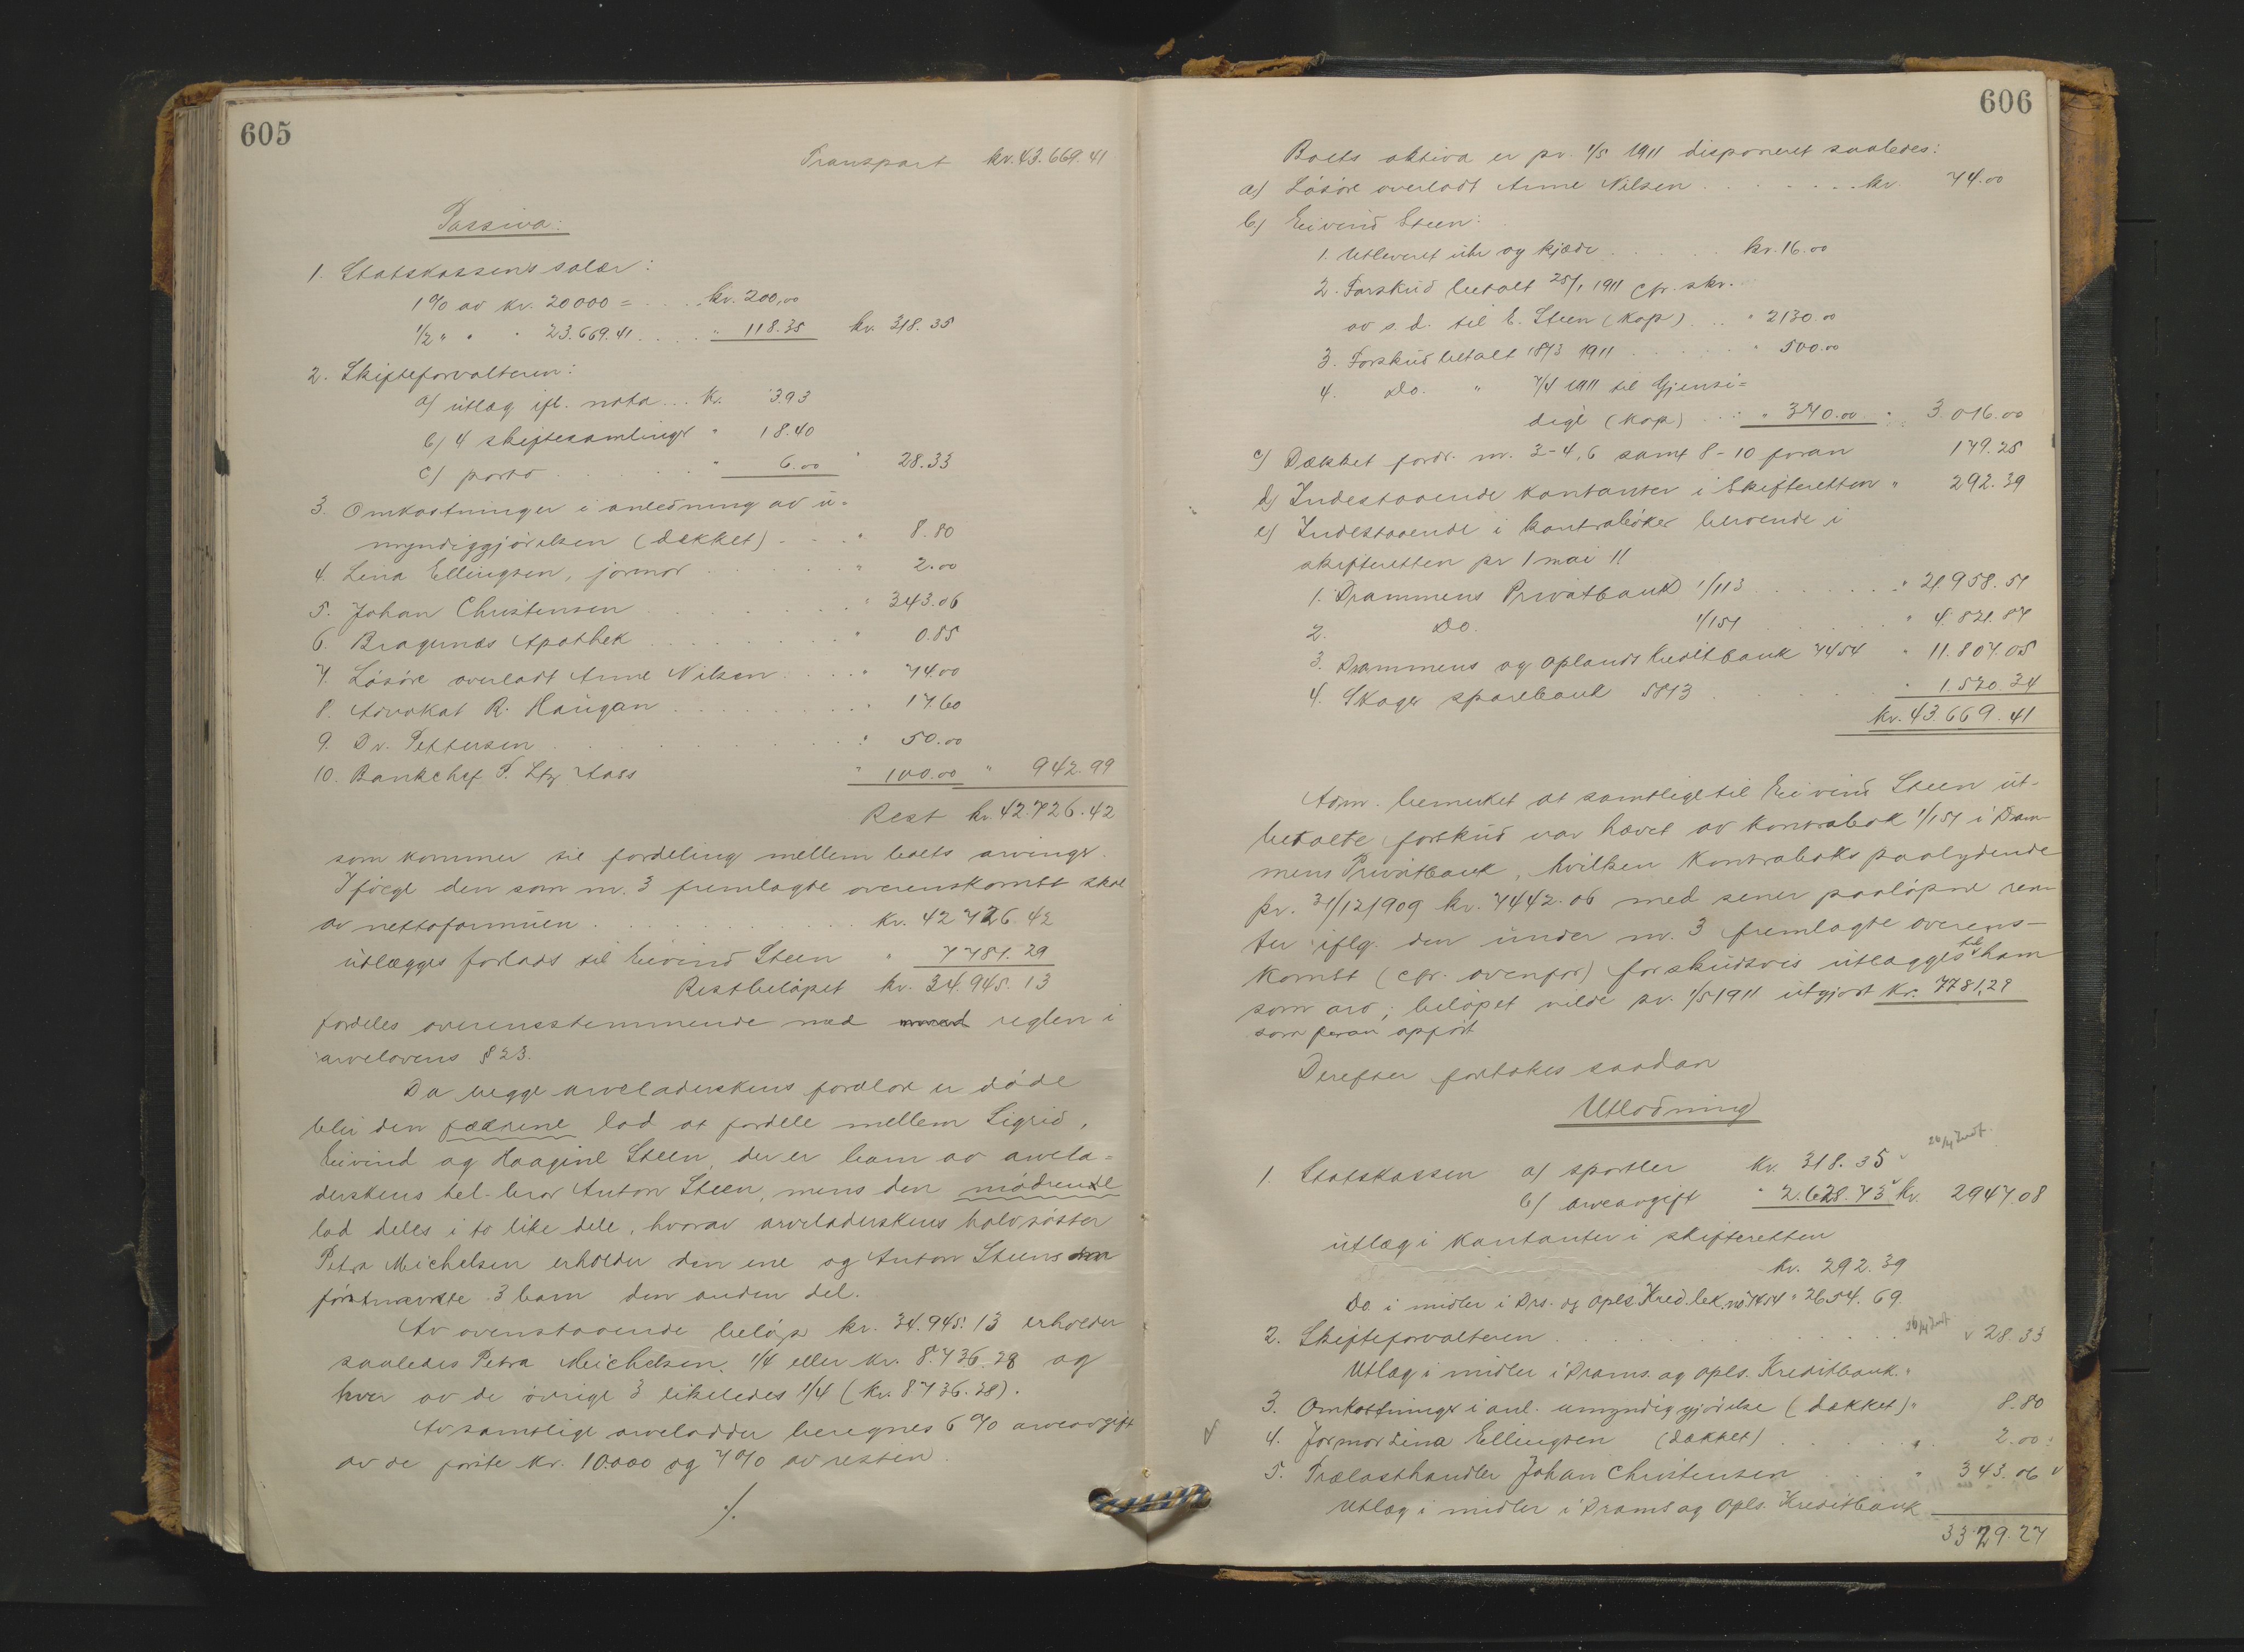 605
Transport kr. 43.669.41
Passiva:
1. Statskassens salær:
1% av kr. 20000 = .... kr. 200,00
1/2 " " " 23.669.41 .... " 118.35 kr. 318.35
2. Skifteforvalteren:
a) utlæg ifl. nota ... kr. 3.93
b) 4 skiftesamlinger " 18.40
c) porto . . . . " 6.00 " 28.33
3. Omkostninger i anledning av u=
myndiggjørelsen (dækket) . . . . " 8.80
4. Lina Ellingsen, jormor . . . . " 2.00
5. Johan Christensen . . . . " 343.06
6. Bragernæs Apothek . . . . " 0.85
7. Løsøre overladt Anne Nilsen . . . . " 74.00
8. Advokat R. Haugan . . . . " 17.60
9. Dr. Pettersen . . . . " 50.00
10. Bankchef P. Ltz. Aass " 100.00 " 942.99
Rest kr. 42.726.42
som kommer til fordeling mellem boets arvinger.
Ifølge den som nr. 3 fremlagte overenskomst skal
av nettoformuen . . . . kr. 42 726.42
utlægges forlods til Eivind Steen " 7781.29
Restbeløpet kr. 34.945.13
fordeles overensstemmende med reglen i
arvelovens § 23.
Da begge arveladerskens forældre er døde
blir den fædrene lod at fordele mellem Sigrid,
Eivind og Haagine Steen, der er barn av arvela=
derskens hel-bror Anton Steen, mens den mødrene
lod deles i to like dele, hvorav arveladerskens halvsøster
Petra Michelsen erholder den ene og Anton Steens
førstnævnte 3 barn den anden del.
Av ovenstaaende beløp kr. 34.945.13 erholder
saaledes Petra Michelsen 1/4 eller kr. 8.736.28 og
hver av de øvrige 3 likeledes 1/4 (kr. 8736.28).
Av samtlige arvelodder beregnes 6% arveavgift
av de første kr. 10.000 og 7% av resten.
./.
606
Boets aktiva er pr. 1/5 1911 disponeret saaledes:
a) Løsøre overladt Anne Nilsen . . . . kr. 74.00
b) Eivind Steen:
1. Utleveret uhr og kjæde . . . . kr. 16.00
2. Forskud betalt 25/1 1911 cfr. skr.
av s. d. til E. Steen (kap) . . . " 2130.00
3. Forskud betalt 18/3 1911 . . . . " 500.00
4. Do. " 7/4 1911 til Gjensi=
dige (kap) . . . " 370.00 " 3.016.00
c) Dækket fordr. nr. 3-4, 6 samt 8-10 foran 179.25
d) Indestaaende kontanter i Skifteretten " 292.39
e) Indestaaende i kontrabøker beroende i
skifteretten pr 1 mai 11
1. Drammens Privatbank 1/113 . . . . " 21.958.51
2. Do. 1/151 . . . . " 4.821.87
3. Drammens og Oplands Kreditbank 7454 " 11.807.05
4. Skoger sparebank 5813 . . . . " 1.520.34
kr. 43.669.41
Adm. bemerket at samtlige til Eivind Steen ut-
betalte forskud var hævet av kontrabok 1/151 i Dram-
mens Privatbank, hvilken kontraboks paalydende
pr. 31/12 1909 kr. 7442.06 med senere paaløpne ren-
ter iflg. den under nr. 3 fremlagte overens-
komst (cfr. ovenfor) forskudsvis utlægges til ham
som arv; beløpet vilde pr. 1/5 1911 utgjort kr. 7781.29
som foran opført
Derefter foretokes saadan
Utlodning
1. Statskassen a) sportler kr. 318.35
b) arveavgift " 2.628.73 kr. 2947.08
utlæg i kontanter i skifteretten
kr. 292.39
Do i midler i Drs. og Opls Kred.bk. no 7454 " 2654.69
2. Skifteforvalteren . . . . 28.33
Utlæg i midler i Drams. og Opls. Kreditbank.
3. Omkostninger i anl. umyndiggjørelse (dækket) " 8.80
4. Jormor Lina Ellingsen (dækket) . . . . " 2.00
5. Trælasthandler Johan Christensen . . . . " 343.06
Utlæg i midler i Drams og Opls. Kreditbank
3329.27